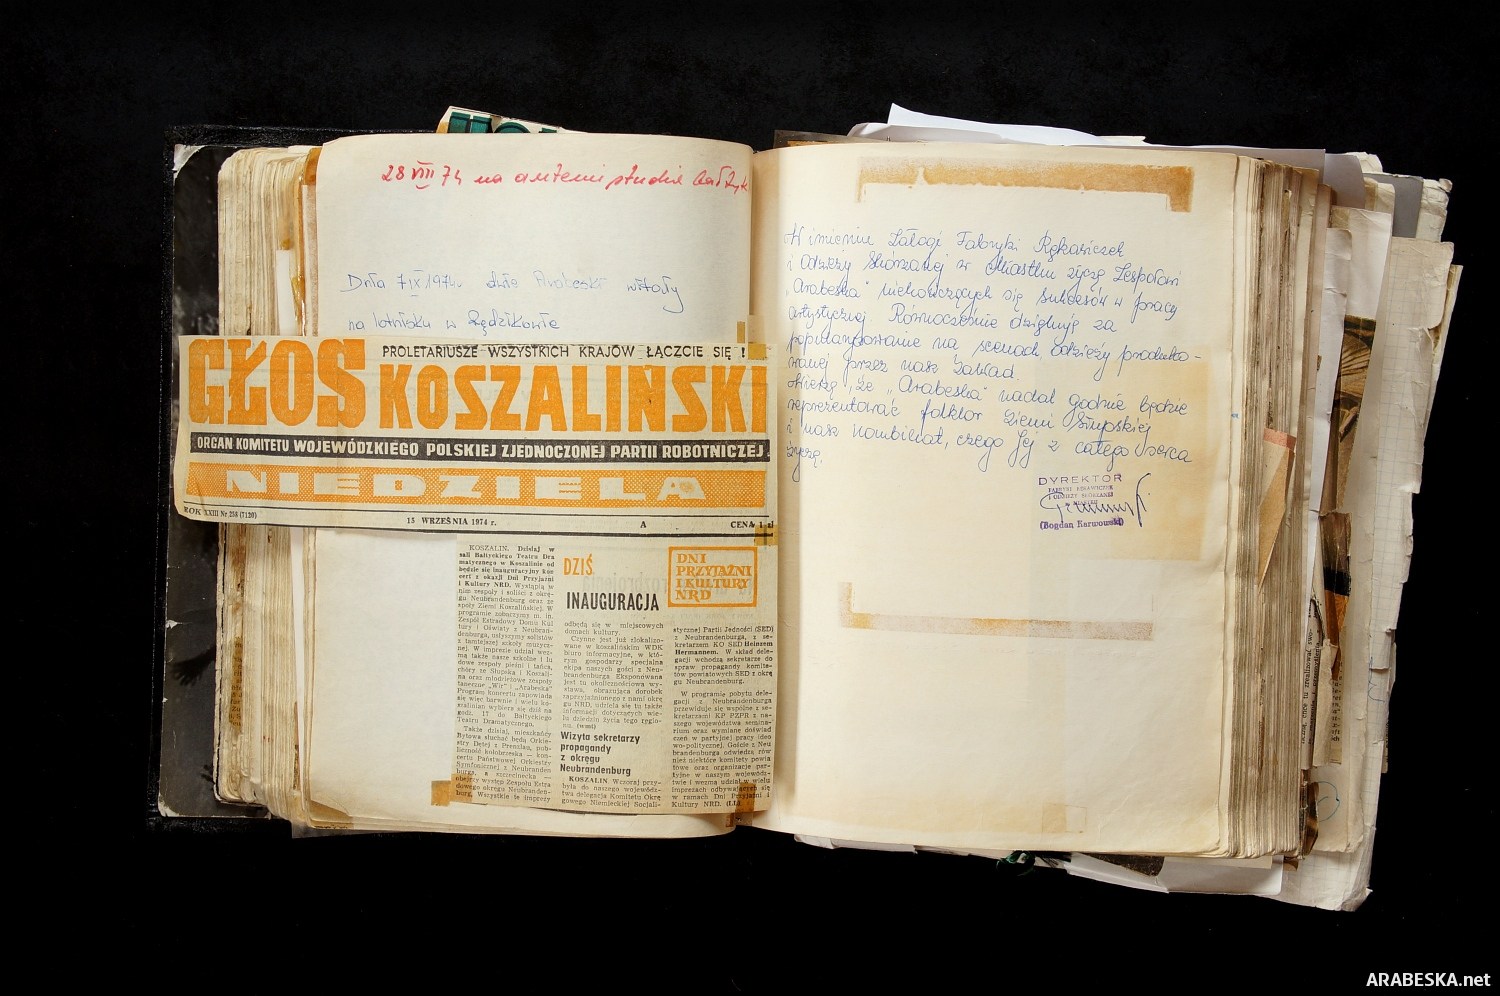 28 VIII 74 na antenie studia Bałtyk
Dnia 7 IX 1974r. dwie Arabeski witały
na lotnisku w Rędzikowie
PROLETARIUSZE WSZYSTKICH KRAJÓW ŁĄCZCIE SIĘ !
GŁOS KOSZALIŃSKI
ORGAN KOMITETU WOJEWÓDZKIEGO POLSKIEJ ZJEDNOCZONEJ PARTII ROBOTNICZEJ
NIEDZIELA
ROK XXIII Nr 258 (7120) 15 WRZEŚNIA 1974 r. A CENA 1 zł
KOSZALIN. Dzisiaj w
sali Bałtyckiego Teatru Dra
matycznego w Koszalinie od
będzie się inauguracyjny kon
cert z okazji Dni Przyjaźni
i Kultury NRD. Wystąpią w
nim zespoły i soliści z okrę-
gu Neubrandenburg oraz ze
społy Ziemi Koszalińskiej. W
programie zobaczymy m. in.
Zespół Estradowy Domu Kul
tury i Oświaty z Neubran-
denburga, usłyszymy solistów
z tamtejszej szkoły muzycz-
nej. W imprezie udział wez-
mą także nasze szkolne i lu
dowe zespoły pieśni i tańca,
chóry ze Słupska i Koszali-
na oraz młodzieżowe zespoły
taneczne „Wir” i „Arabeska”
Program koncertu zapowiada
się więc barwnie i wielu ko-
szalinian wybierze się dziś na
godz. 17 do Bałtyckiego
Teatru Dramatycznego.
Także dzisiaj, mieszkańcy
Bytowa słuchać będą Orkie-
stry Dętej z Prenzlau, pub-
liczność kołobrzeska — kon-
certu Państwowej Orkiestry
Symfonicznej z Neubranden
burga, a szczecinecka —
obejrzy występ Zespołu Estra
dowego okręgu Neubranden-
burg. Wszystkie te imprezy
DZIŚ
INAUGURACJA
DNI
PRZYJAŹNI
I KULTURY
NRD
odbędą się w miejscowych
domach kultury.
Czynne jest już zlokalizo-
wane w koszalińskim WDK
biuro informacyjne, w któ-
rym gospodarzy specjalna
ekipa naszych gości z Neu-
brandenburga. Eksponowana
jest tu okolicznościowa wy-
stawa, obrazująca dorobek
zaprzyjaźnionego z nami okrę
gu NRD, udziela się tu także
informacji dotyczących wie-
lu dziedzin życia tego regio-
nu. (wmt)
Wizyta sekretarzy
propagandy
z okręgu
Neubrandenburg
KOSZALIN. Wczoraj przy-
była do naszego wojewódz-
twa delegacja Komitetu Okrę
gowego Niemieckiej Socjali-
stycznej Partii Jedności (SED)
z Neubrandenburga, z se-
kretarzem KO SED Heinzem
Hermannem. W skład dele-
gacji wchodzą sekretarze do
spraw propagandy komite-
tów powiatowych SED z okrę
gu Neubrandenburg.
W programie pobytu dele-
gacji z Neubrandenburga
przewiduje się wspólne z se-
kretarzami KP PZPR z na-
szego województwa semina-
rium oraz wymianę doświad
czeń w partyjnej pracy ideo
wo-politycznej. Goście z Neu
brandenburga odwiedzą rów
nież niektóre komitety powia
towe oraz organizacje par-
tyjne w naszym wojewódz-
twie i wezmą udział w wielu
imprezach odbywających się
w ramach Dni Przyjaźni i
Kultury NRD. (LL)
W imieniu Załogi Fabryki Rękawiczek
i Odzieży Skórzanej w Miastku życzę Zespołowi
„Arabeska” niekończących się sukcesów w pracy
artystycznej. Równocześnie dziękuję za
popularyzowanie na scenach odzieży produko-
wanej przez nasz Zakład.
Wierzę, że „Arabeska” nadal godnie będzie
reprezentować folklor Ziemi Słupskiej
i nasz kombinat, czego Jej z całego serca
życzę.
DYREKTOR
FABRYKI RĘKAWICZEK
I ODZIEŻY SKÓRZANEJ
w MIASTKU
(Bogdan Karwowski)
ARABESKA.net